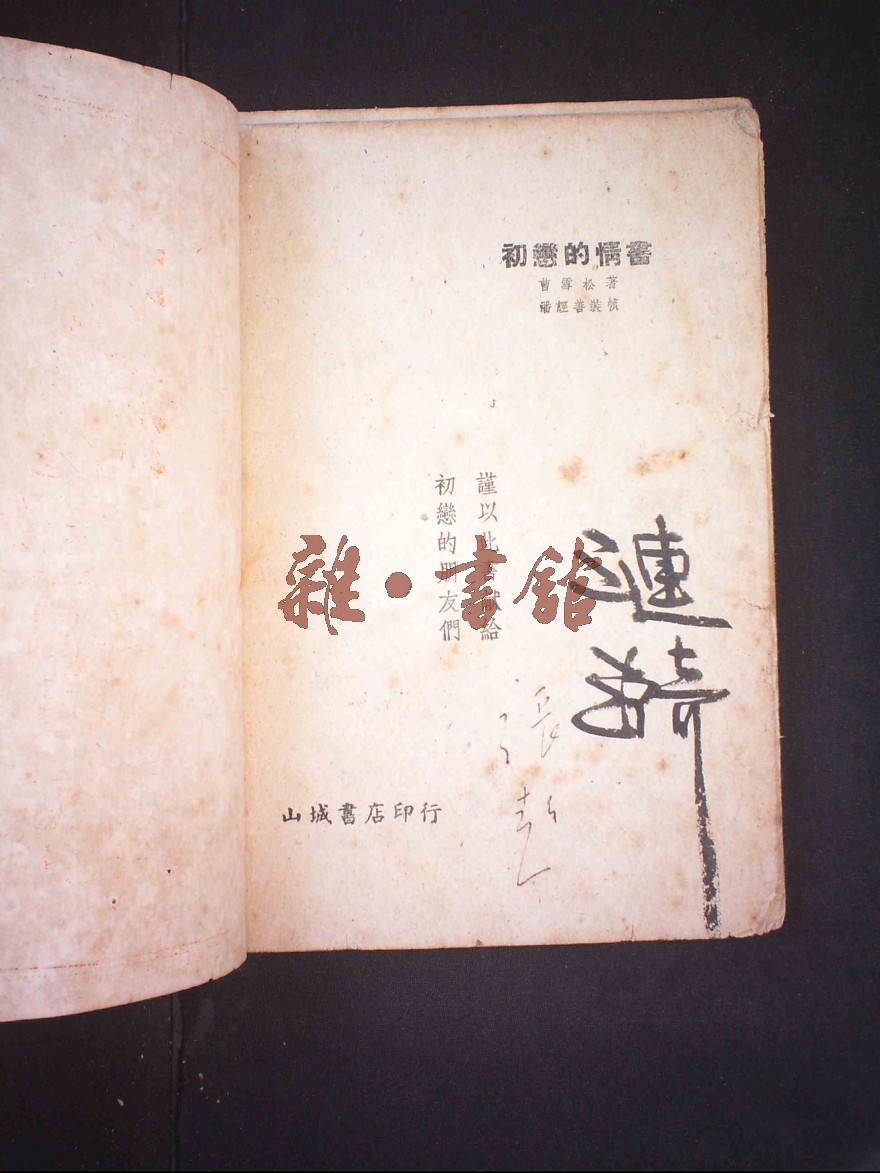 初戀的情書
曹雪松著
潘經善裝幀
謹以此書獻給
初戀的朋友們
雜·書館
山城書店印行